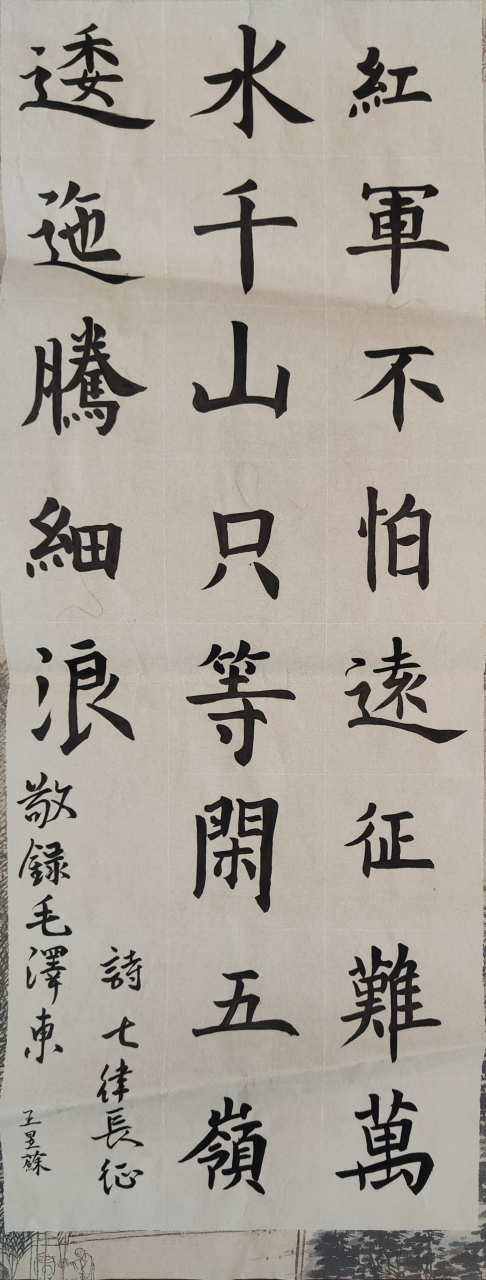 紅軍不怕遠征難萬
水千山只等閑五嶺
逶迤騰細浪
敬録毛澤東
詩七律長征
王昱蘇